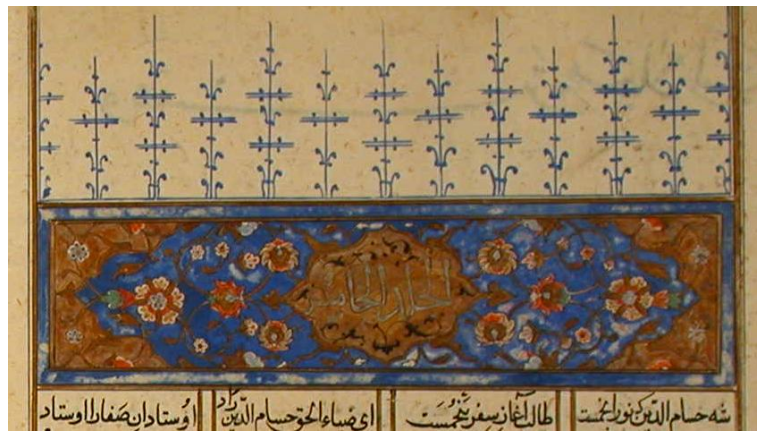 المجلد الخامس
شه حسام الدین که نور انجمست
طالب آغاز سفر پنجمست
ای ضیاء الحق حسام الدین راد
اوستادان صفا را اوستاد